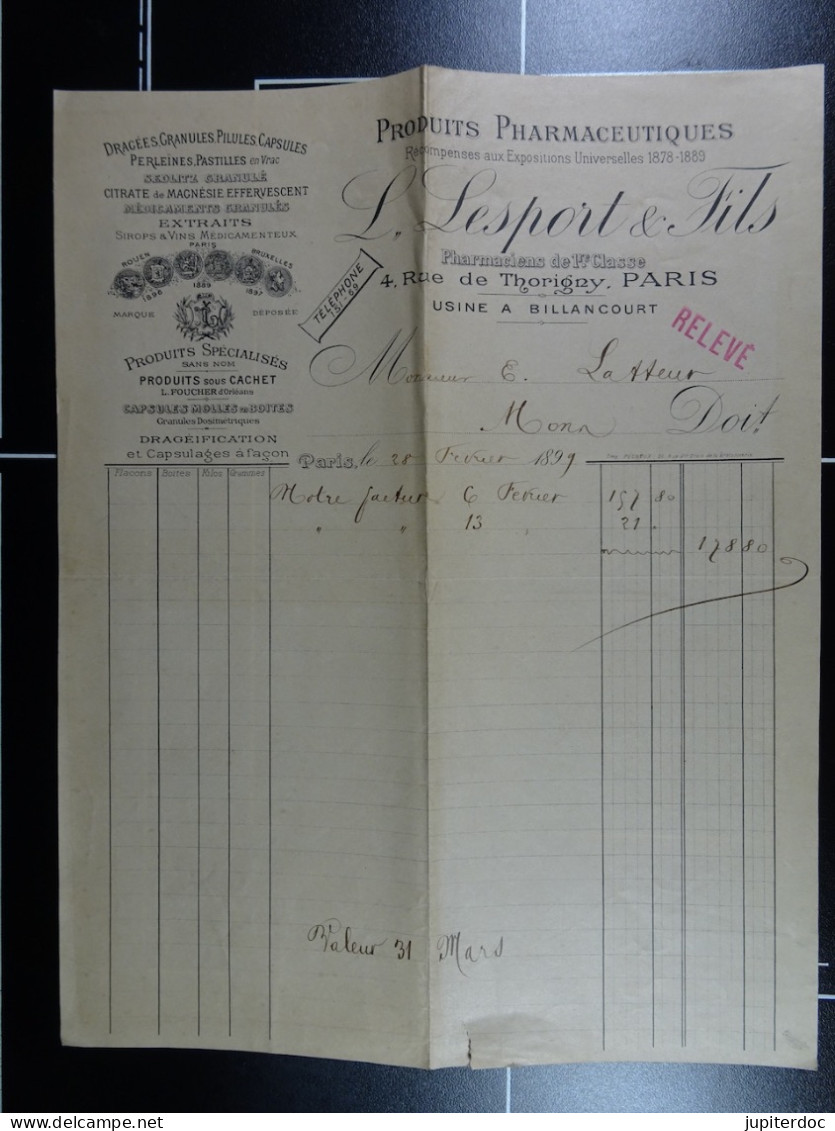 DRAGÉES, GRANULES, PILULES, CAPSULES
PERLEÏNES, PASTILLES en Vrac
SEDLITZ GRANULÉ
CITRATE de MAGNÉSIE EFFERVESCENT
MÉDICAMENTS GRANULÉS
EXTRAITS
SIROPS & VINS MÉDICAMENTEUX
PARIS
ROUEN
BRUXELLES
1896
1889
1897
MARQUE DÉPOSÉE
PRODUITS SPÉCIALISÉS
SANS NOM
PRODUITS sous CACHET
L. FOUCHER d'Orléans
CAPSULES MOLLES en BOITES
Granules Dosimétriques
DRAGÉIFICATION
et Capsulages à façon
PRODUITS PHARMACEUTIQUES
Récompenses aux Expositions Universelles 1878-1889
L. Lesport & Fils
Pharmaciens de 1re Classe
4, Rue de Thorigny, PARIS
USINE A BILLANCOURT
TÉLÉPHONE
RELEVÉ
Monsieur E. Latteur
Mons Doit
Paris, le 28 Fevrier 1899
Flacons Boites Kilos Grammes
Notre facture 6 Fevrier 157 80
" " 13 " 21 "
178 80
Valeur 31 Mars
jupiterdoc
delcampe.net